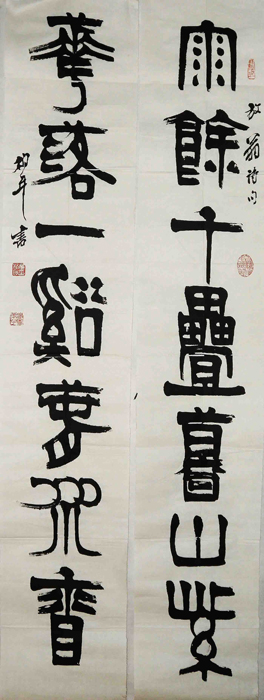 雨餘千疊暮山紫
放翁詩句
華落一谿春水香
書